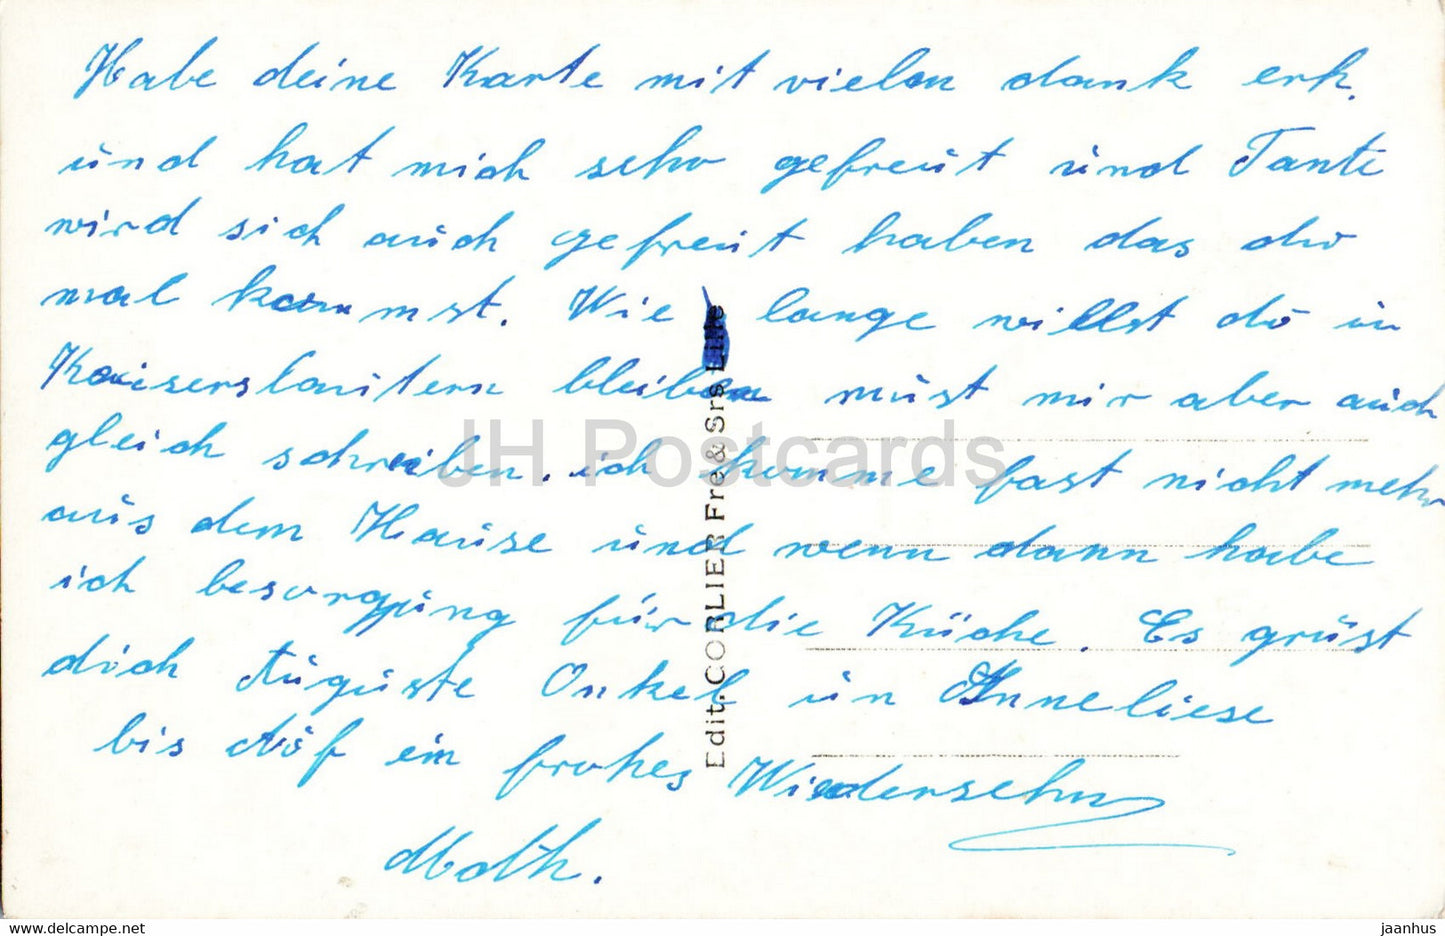 Habe deine Karte mit vielen dank erh.
und hat mich sehr gefreut und Tante
wird sich auch gefreut haben das du
mal kommst. Wie lange willst du in
Kaiserslautern bleiben must mir aber auch
gleich schreiben. ich komme fast nicht mehr
aus dem Hause und wenn dann habe
ich besorgung für die Küche. Es grüst
dich Auguste Onkel un Anneliese
bis Auf ein frohes Wiedersehn
Math.
Edit. CORLIER Fre & Srs Lille
JH Postcards
https://www.delcampe.net
jaanhus